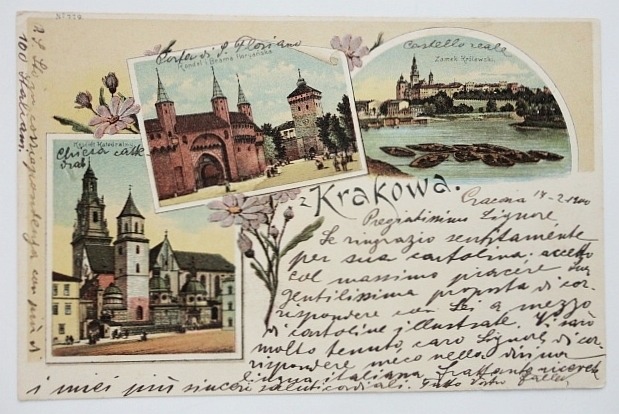 Nº 112
Porta di S. Floriano
Rondel i Brama Floryańska
Castello reale
Zamek Królewski.
Kościół Katedralny
Chiesa catte-
drale
z Krakowa.
Cracovia 14-2-1900
Pregiatissimo Signore
Le ringrazio sentitamente
per sua cartolina; accetto
col massimo piacere sua
gentilissima proposta di cor-
rispondere con Lei a mezzo
di cartoline illustrate. Vi sarò
molto tenuto, caro Signore, di cor-
rispondere meco nella divina
lingua italiana. Frattanto ricevete
i miei più sinceri saluti cordiali. Tutto Vostro
corrispondenza con più di
100 Italiani!